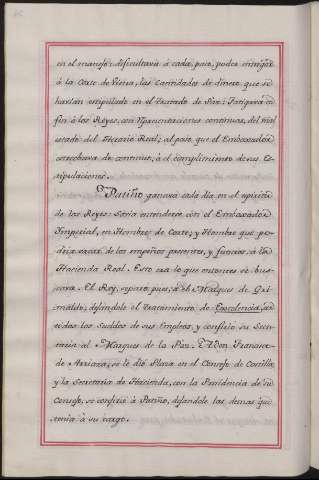 en el manejo: dificultaria á cada paso, poder entregar
á la Corte de Viena, las Cantidades de dinero que se
havian estipulado en el tratado de Paz: fatigava en
fin á los Reyes, con representaciones continuas, del mal
estado del Herario Real; al paso que el Embaxador
estrechava de continuo, á el cumplimiento de sus Es-
tipulaciones.
Patiño ganava cada dia en el espiritu
de los Reyes: Seria entenderse con el Embaxador
Imperial, un Hombre de Corte; y Hombre que po-
dria sacar de los empeños presentes, y futuros á la
Hacienda Real. Esto era lo que entonces se bus-
cava. El Rey, separó pues, á el Marques de Gri-
maldo; dejandole el tratamiento de Excelencia, con
todos los Sueldos de sus Empleos, y confirió su Secre-
taria al Marques de la Paz. A Don Francisco
de Arriaza, se le dió Plaza en el Consejo de Castilla;
y la Secretaria de Hacienda, con la Presidencia de su
Consejo, se confirió á Patiño, dejandole las demas que
tenia á su cargo.